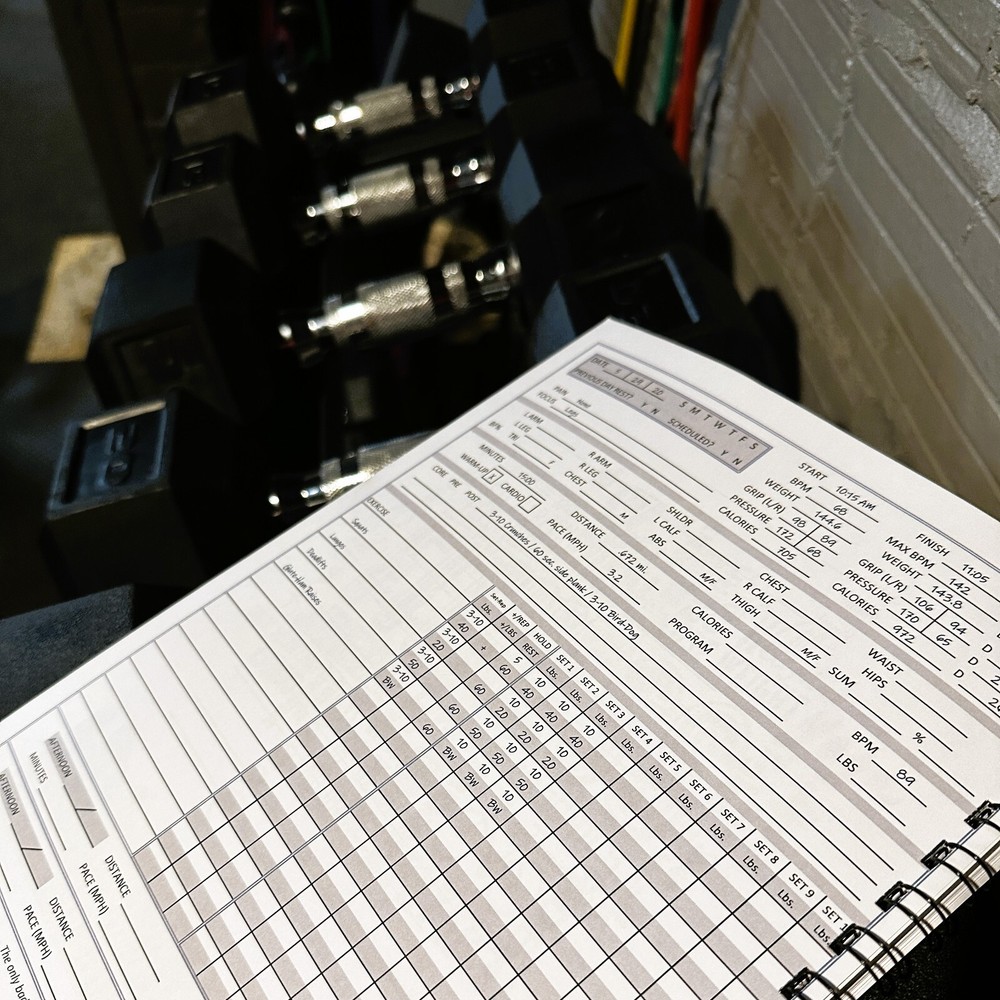 DATE 5 29 20 S M T W T F S
PREVIOUS DAY REST? Y N SCHEDULED? Y N
PAIN NONE
FOCUS Legs
L ARM R ARM
L LEG R LEG
TRI CHEST SHLDR CHEST WAIST
L CALF R CALF HIPS
ABS THIGH SUM %
M M/F M/F
START 10:15 AM
BPM 68
WEIGHT 144.6
GRIP (L/R) 98 89
PRESSURE 172 68
CALORIES 705
FINISH 11:05
MAX BPM 142
WEIGHT 143.8
GRIP (L/R) 106 94
PRESSURE 170 65
CALORIES 972
MINUTES 15:00 DISTANCE .672 mi. CALORIES BPM 89
WARM-UP CARDIO PACE (MPH) 3.2 PROGRAM LBS
CORE PRE POST 3-10 Crunches / 60 sec. side plank / 3-10 Bird-Dog
EXERCISE Set-Rep +/REP HOLD SET 1 SET 2 SET 3 SET 4 SET 5 SET 6 SET 7 SET 8 SET 9
Lbs. +/LBS REST Lbs. Lbs. Lbs. Lbs. Lbs. Lbs. Lbs. Lbs. Lbs. Lbs.
Squats 3-10 + 5 10 10 10
40 60 40 40 40
Lunges 3-10 10 10 10
20 60 20 20 20
Deadlifts 3-10 10 10 10
50 60 50 50 50
Glute-Ham Raises 3-10 10 10 10
BW 60 BW BW BW
AFTERNOON
MINUTES DISTANCE
PACE (MPH)
AFTERNOON
DISTANCE
PACE (MPH)
The only